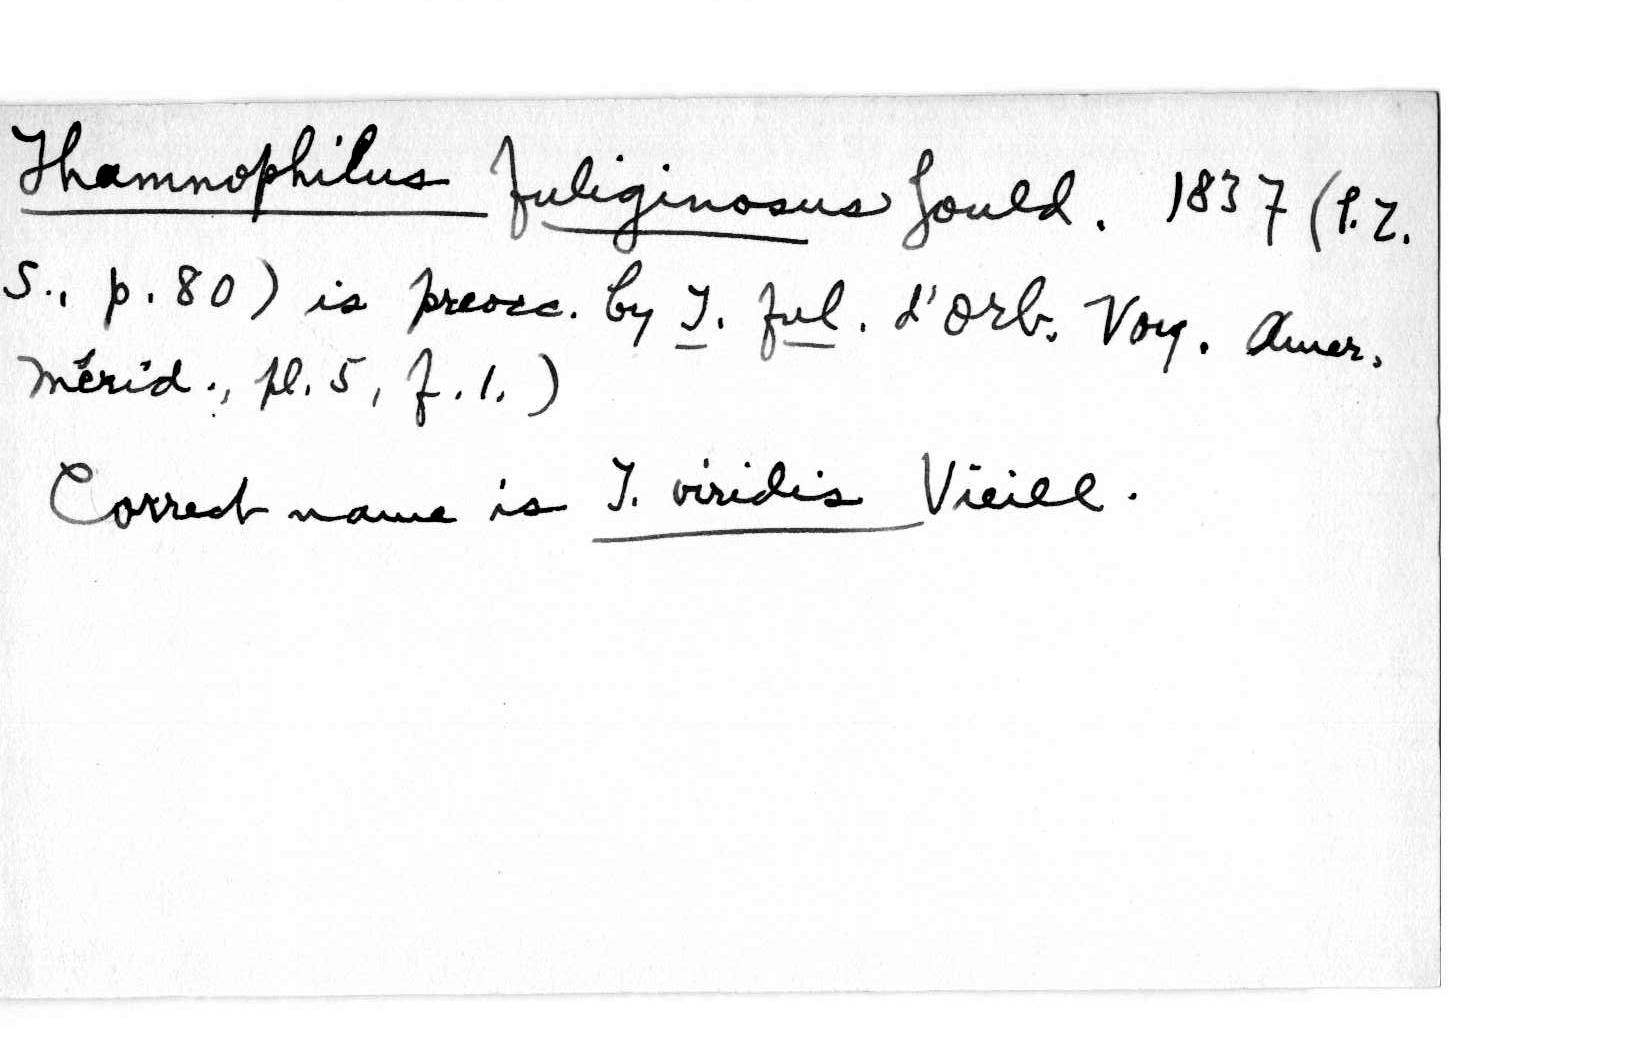 Thamnophilus fuliginosus Gould. 1837 (P.Z.
S., p. 80) is preocc. by T. ful. d'Orb. Voy. Amer.
Mérid., pl. 5, f. 1.)
Correct name is T. viridis Vieill.